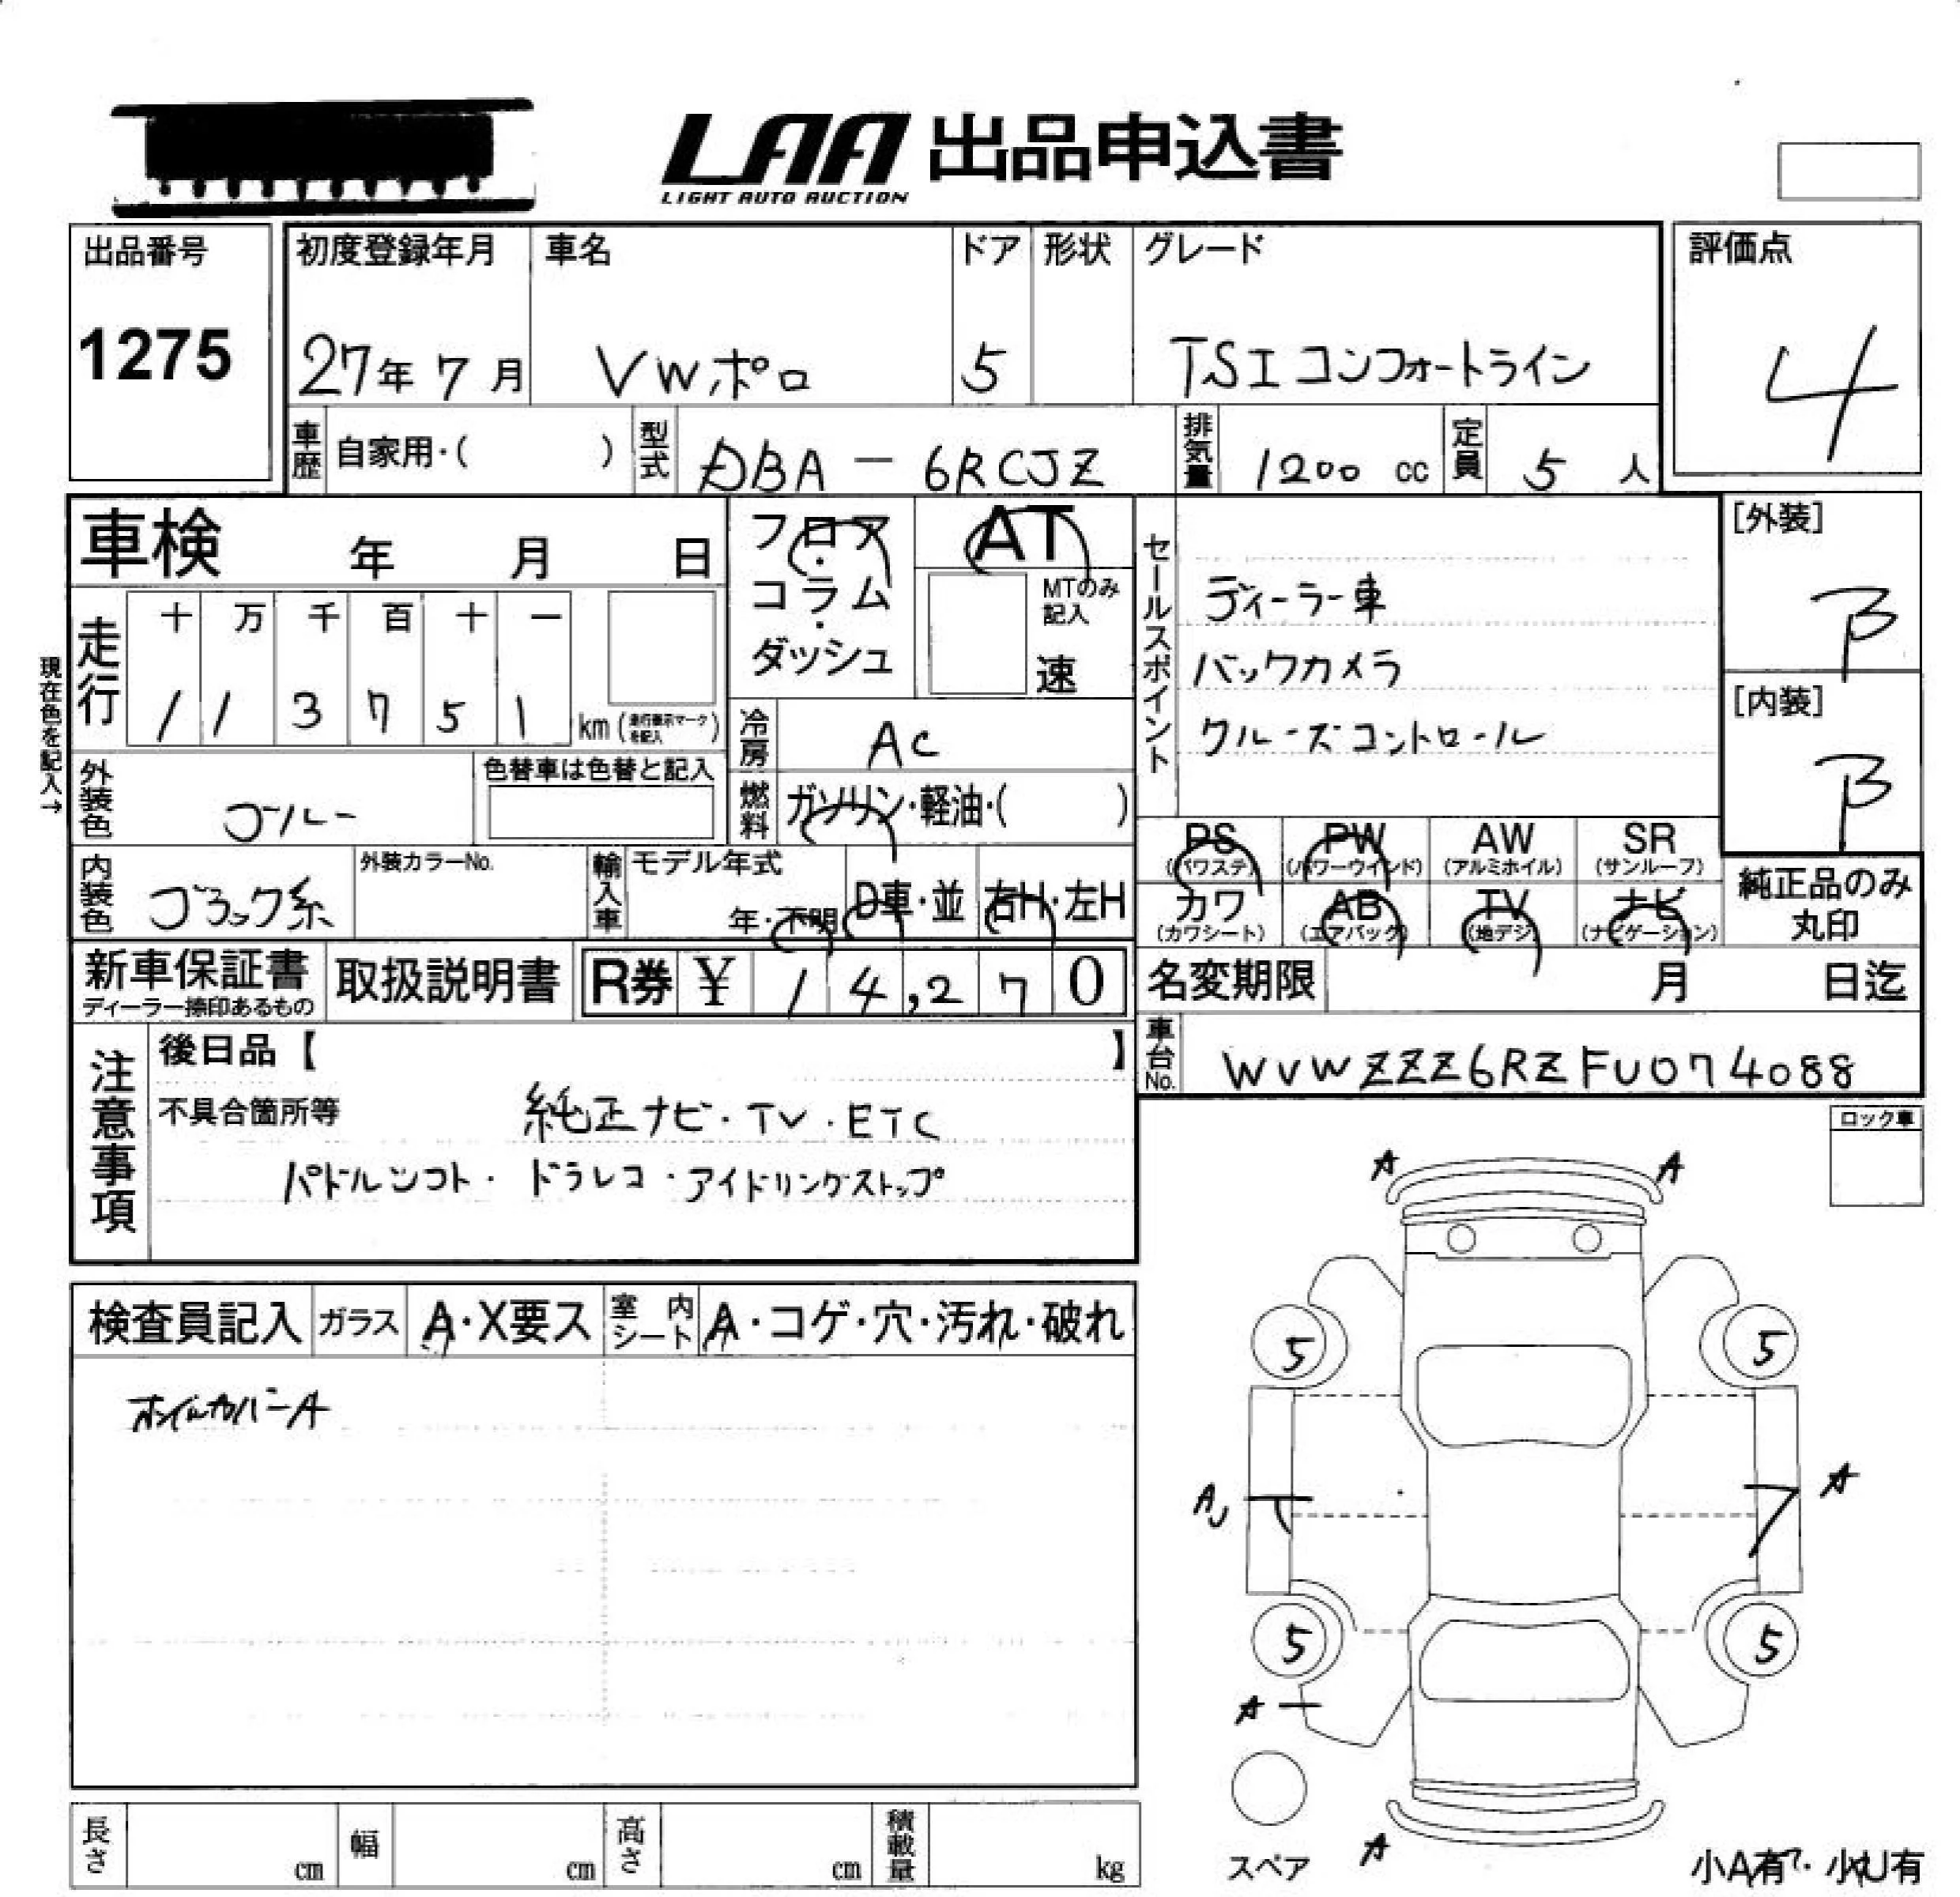 LAA 出品申込書
LIGHT AUTO AUCTION
出品番号
1275
初度登録年月
27年 7月
車名
VWポロ
ドア
5
形状
グレード
TSI コンフォートライン
評価点
4
車歴 自家用・( )
型式 DBA-6RCJZ
排気量 1200 cc
定員 5 人
車検 年 月 日
フロア・コラム・ダッシュ
AT
MTのみ記入
速
セールスポイント
ディーラー車
バックカメラ
クルーズコントロール
[外装]
B
[内装]
B
現在色を記入→
走行
十 万 千 百 十 一
1 1 3 7 5 1 km (走行表示マークを記入)
冷房 AC
燃料 ガソリン・軽油・( )
外装色 ブルー
色替車は色替と記入
内装色 ブラック系
外装カラーNo.
輸入車 モデル年式
年・不明 D車・並 右H・左H
PS (パワステ) PW (パワーウインド) AW (アルミホイル) SR (サンルーフ)
カワ (カワシート) AB (エアバック) TV (地デジ) ナビ (ナビゲーション)
純正品のみ丸印
新車保証書
ディーラー捺印あるもの
取扱説明書
R券 ¥ 14,270
名変期限 月 日迄
車台No. WVWZZZ6RZFU074088
注意事項
後日品【 】
不具合箇所等 純正ナビ・TV・ETC
パドルシフト・ドラレコ・アイドリングストップ
ロック車
検査員記入 ガラス A・X要ス 室内シート A・コゲ・穴・汚れ・破れ
ホイルカバーA
A A
5 5
AU A
5 5
A
スペア
A
小A有・小U有
長さ cm 幅 cm 高さ cm 積載量 kg